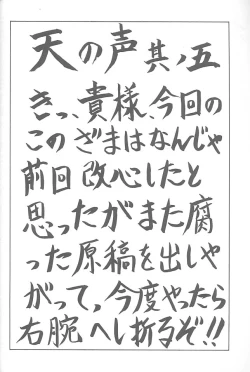 天の声其ノ五
きっ、貴様、今回の
このざまはなんじゃ
前回改心したと
思ったがまた腐
った原稿を出しや
がって、今度やったら
右腕へし折るぞ!!